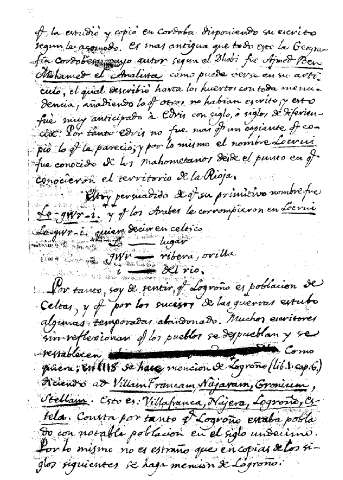 qͤ. la estudió y copió en Cordoba disponiendo su escrito
segun le acomodo. Es mas antigua que todo esto la Geogra-
fia Cordobesa cuyo autor segun el Dhabi fue Ajmed Ben
Mohamed el Analista como puede verse en su arti-
culo, el qual describió hasta los huertos con toda menu-
dencia, añadiendo lo qͤ. otros no habian escrito, y esto
fue muy anticipado a Edris con siglo, ó siglos de diferien-
cia. Por tanto Edris no fue mas qͤ. un copiante qͤ. co-
pió lo qͤ. le pareció; y por lo mismo el nombre Locrui
fue conocido de los Mahometanos desde el punto en qͤ.
conocieron el territorio de la Rioja.
Estoy persuadido de qͤ. su primitivo nombre fue
Lo-gwr-i, y qͤ. los Arabes le corrompieron en Locrui
Lo-gwr-i, quiere decir en celtico
Lo — lugar
gwr — ribera, orilla
i — del rio.
Por tanto, soy de sentir, qͤ. Logroño es poblacion de
Celtas, y qͤ. por los sucesos de las guerras estubo
algunas temporadas abandonado. Muchos escritores
sin reflexionar qͤ. los pueblos se despueblan y se
restablecen Como
quiera, en 1118 se hace mencion de Logroño (lib. 1. cap. 6.)
diciendo ad Villam Francam, Najaram, Gronium,
Stellam. Esto es: Villafranca, Nájera, Logroño, Es-
tela. Consta por tanto qͤ. Logroño estaba pobla
do con notable poblacion en el siglo undecimo.
Por lo mismo no es estraño que en copias de los si-
glos siguientes se haga mencion de Logroño.